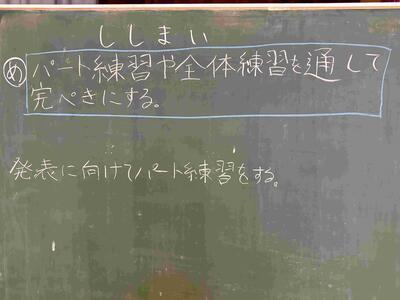 ししまい
め パート練習や全体練習を通して
完ぺきにする。
発表に向けてパート練習をする。